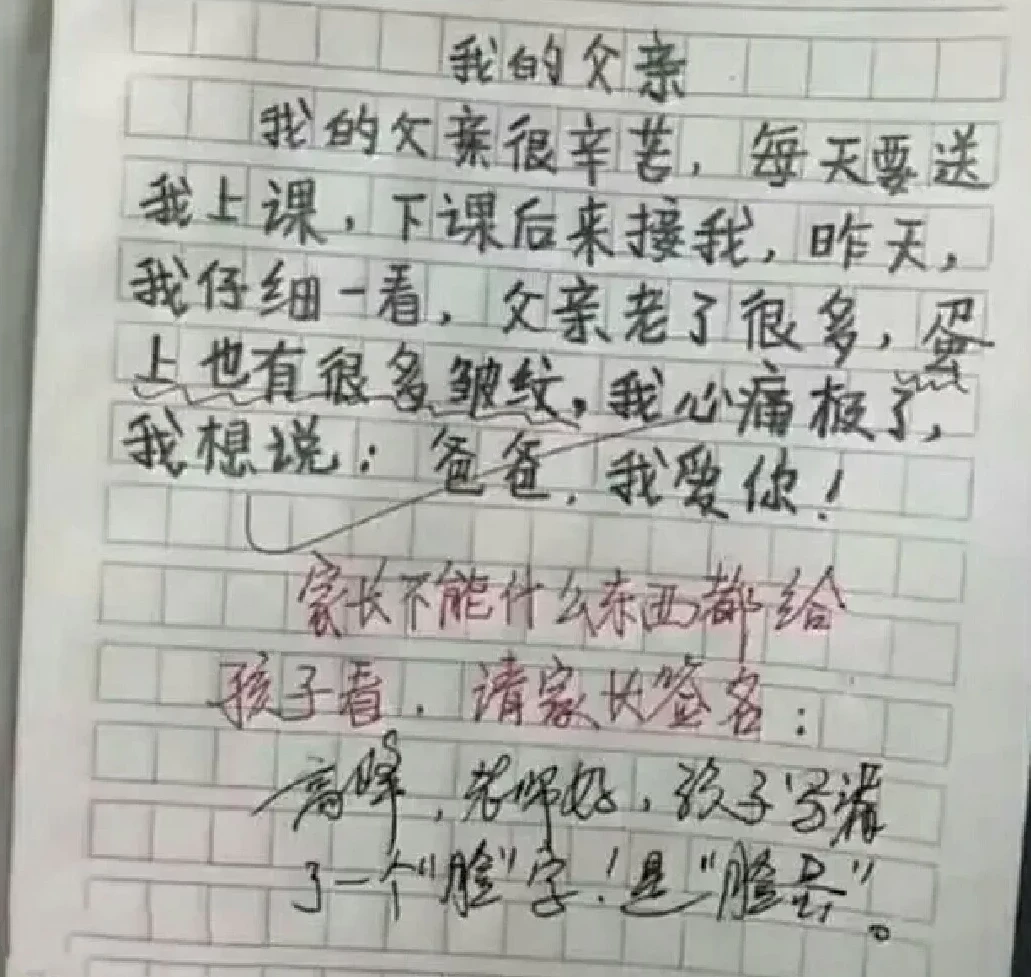 我的父亲
我的父亲很辛苦，每天要送
我上课，下课后来接我，昨天，
我仔细一看，父亲老了很多，蛋
上也有很多皱纹，我心痛极了，
我想说：爸爸，我爱你！
家长不能什么东西都给
孩子看，请家长签名：
高峰，老师好，孩子写漏
了一个“脸”字！是“脸蛋”。